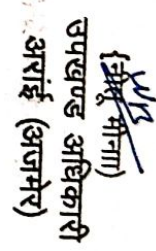 मीना)
उपखण्ड अधिकारी
अरांई (अजमेर)